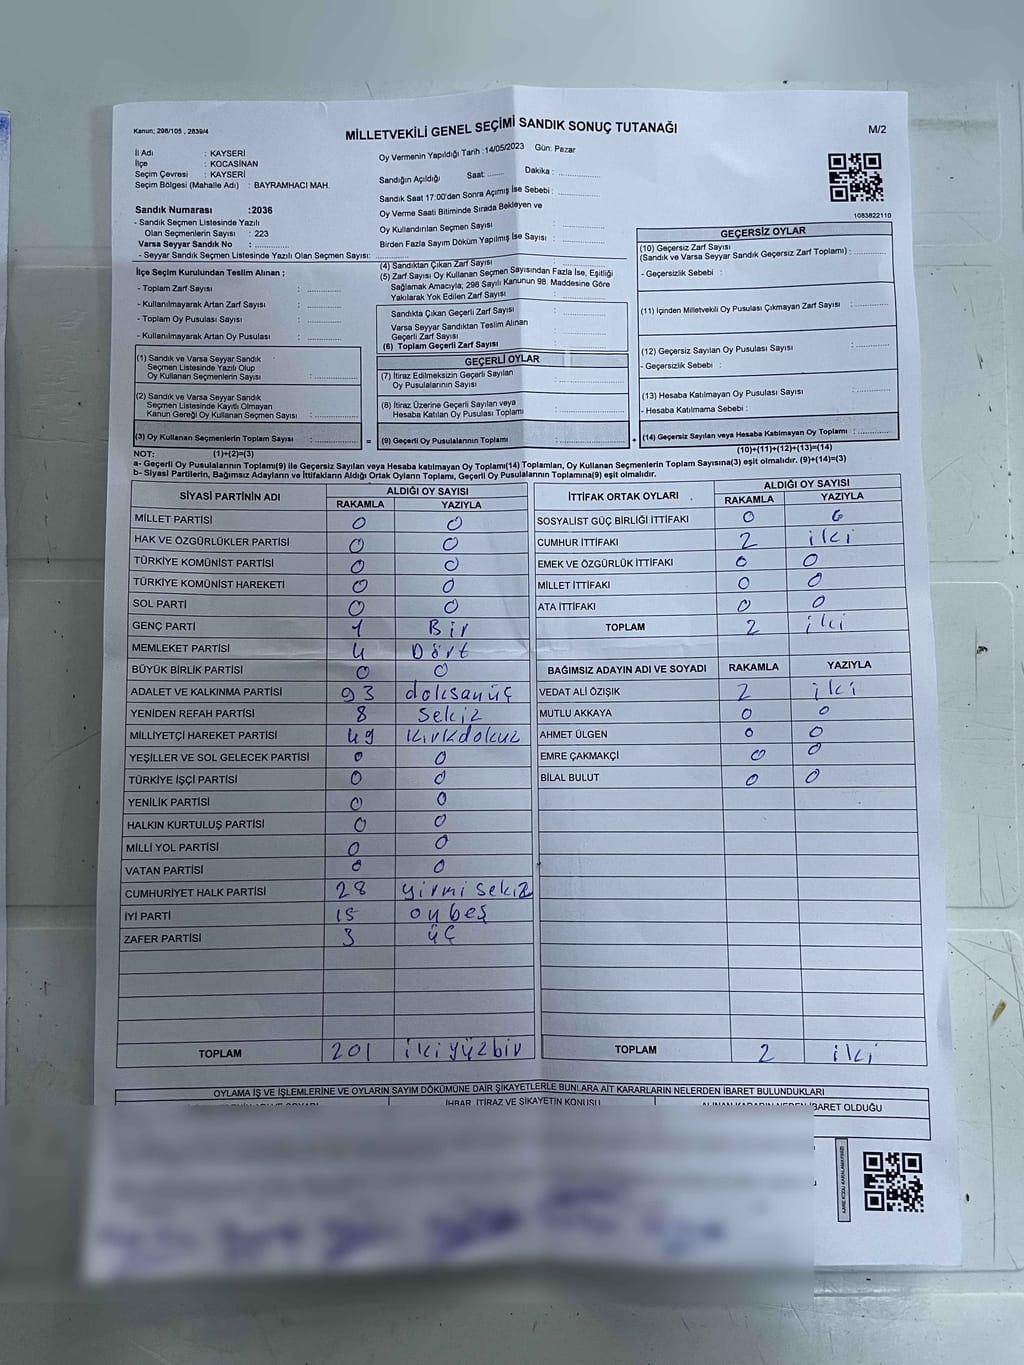 Kanun; 298/105 , 2839/4
MİLLETVEKİLİ GENEL SEÇİMİ SANDIK SONUÇ TUTANAĞI
M/2
İl Adı : KAYSERİ
İlçe : KOCASİNAN
Seçim Çevresi : KAYSERİ
Seçim Bölgesi (Mahalle Adı) : BAYRAMHACI MAH.
Sandık Numarası :2036
- Sandık Seçmen Listesinde Yazılı
Olan Seçmenlerin Sayısı : 223
Varsa Seyyar Sandık No : ............
- Seyyar Sandık Seçmen Listesinde Yazılı Olan Seçmen Sayısı: ............
Oy Vermenin Yapıldığı Tarih :14/05/2023 Gün: Pazar
Sandığın Açıldığı Saat: ........ Dakika : ............
Sandık Saat 17:00'den Sonra Açımış İse Sebebi : ............
Oy Verme Saati Bitiminde Sırada Bekleyen ve
Oy Kullandırılan Seçmen Sayısı : ............
Birden Fazla Sayım Döküm Yapılmış İse Sayısı : ............
1083822110
İlçe Seçim Kurulundan Teslim Alınan ;
- Toplam Zarf Sayısı : ............
- Kullanılmayarak Artan Zarf Sayısı : ............
- Toplam Oy Pusulası Sayısı : ............
- Kullanılmayarak Artan Oy Pusulası : ............
(1) Sandık ve Varsa Seyyar Sandık
Seçmen Listesinde Yazılı Olup
Oy Kullanan Seçmenlerin Sayısı : ............
(2) Sandık ve Varsa Seyyar Sandık
Seçmen Listesinde Kayıtlı Olmayan
Kanun Gereği Oy Kullanan Seçmen Sayısı : ............
(3) Oy Kullanan Seçmenlerin Toplam Sayısı : ............
(4) Sandıktan Çıkan Zarf Sayısı : ............
(5) Zarf Sayısı Oy Kullanan Seçmen Sayısından Fazla İse, Eşitliği
Sağlamak Amacıyla; 298 Sayılı Kanunun 98. Maddesine Göre
Yakılarak Yok Edilen Zarf Sayısı : ............
Sandıkta Çıkan Geçerli Zarf Sayısı : ............
Varsa Seyyar Sandıktan Teslim Alınan
Geçerli Zarf Sayısı : ............
(6) Toplam Geçerli Zarf Sayısı : ............
GEÇERLİ OYLAR
(7) İtiraz Edilmeksizin Geçerli Sayılan
Oy Pusulalarının Sayısı : ............
(8) İtiraz Üzerine Geçerli Sayılan veya
Hesaba Katılan Oy Pusulası Toplamı : ............
= (9) Geçerli Oy Pusulalarının Toplamı : ............
GEÇERSİZ OYLAR
(10) Geçersiz Zarf Sayısı
(Sandık ve Varsa Seyyar Sandık Geçersiz Zarf Toplamı) : ............
- Geçersizlik Sebebi :
(11) İçinden Milletvekili Oy Pusulası Çıkmayan Zarf Sayısı : ............
(12) Geçersiz Sayılan Oy Pusulası Sayısı : ............
- Geçersizlik Sebebi :
(13) Hesaba Katılmayan Oy Pusulası Sayısı : ............
- Hesaba Katılmama Sebebi :
+ (14) Geçersiz Sayılan veya Hesaba Katılmayan Oy Toplamı : ............
NOT: (1)+(2)=(3)
(10)+(11)+(12)+(13)=(14)
a- Geçerli Oy Pusulalarının Toplamı(9) ile Geçersiz Sayılan veya Hesaba katılmayan Oy Toplamı(14) Toplamları, Oy Kullanan Seçmenlerin Toplam Sayısına(3) eşit olmalıdır. (9)+(14)=(3)
b- Siyasi Partilerin, Bağımsız Adayların ve İttifakların Aldığı Ortak Oyların Toplamı, Geçerli Oy Pusulalarının Toplamına(9) eşit olmalıdır.
SİYASİ PARTİNİN ADI ALDIĞI OY SAYISI
RAKAMLA YAZIYLA
MİLLET PARTİSİ 0 0
HAK VE ÖZGÜRLÜKLER PARTİSİ 0 0
TÜRKİYE KOMÜNİST PARTİSİ 0 0
TÜRKİYE KOMÜNİST HAREKETİ 0 0
SOL PARTİ 0 0
GENÇ PARTİ 1 Bir
MEMLEKET PARTİSİ 4 Dört
BÜYÜK BİRLİK PARTİSİ 0 0
ADALET VE KALKINMA PARTİSİ 93 doksanüç
YENİDEN REFAH PARTİSİ 8 Sekiz
MİLLİYETÇİ HAREKET PARTİSİ 49 Kırkdokuz
YEŞİLLER VE SOL GELECEK PARTİSİ 0 0
TÜRKİYE İŞÇİ PARTİSİ 0 0
YENİLİK PARTİSİ 0 0
HALKIN KURTULUŞ PARTİSİ 0 0
MİLLİ YOL PARTİSİ 0 0
VATAN PARTİSİ 0 0
CUMHURİYET HALK PARTİSİ 28 yirmi sekiz
İYİ PARTİ 15 onbeş
ZAFER PARTİSİ 3 üç
TOPLAM 201 ikiyüzbir
İTTİFAK ORTAK OYLARI ALDIĞI OY SAYISI
RAKAMLA YAZIYLA
SOSYALİST GÜÇ BİRLİĞİ İTTİFAKI 0 0
CUMHUR İTTİFAKI 2 iki
EMEK VE ÖZGÜRLÜK İTTİFAKI 0 0
MİLLET İTTİFAKI 0 0
ATA İTTİFAKI 0 0
TOPLAM 2 iki
BAĞIMSIZ ADAYIN ADI VE SOYADI RAKAMLA YAZIYLA
VEDAT ALİ ÖZIŞIK 2 iki
MUTLU AKKAYA 0 0
AHMET ÜLGEN 0 0
EMRE ÇAKMAKÇİ 0 0
BİLAL BULUT 0 0
TOPLAM 2 iki
OYLAMA İŞ VE İŞLEMLERİNE VE OYLARIN SAYIM DÖKÜMÜNE DAİR ŞİKAYETLERLE BUNLARA AİT KARARLARIN NELERDEN İBARET BULUNDUKLARI
İHBAR, İTİRAZ VE ŞİKAYETİN KONUSU
ALINAN KARARIN NEDEN İBARET OLDUĞU